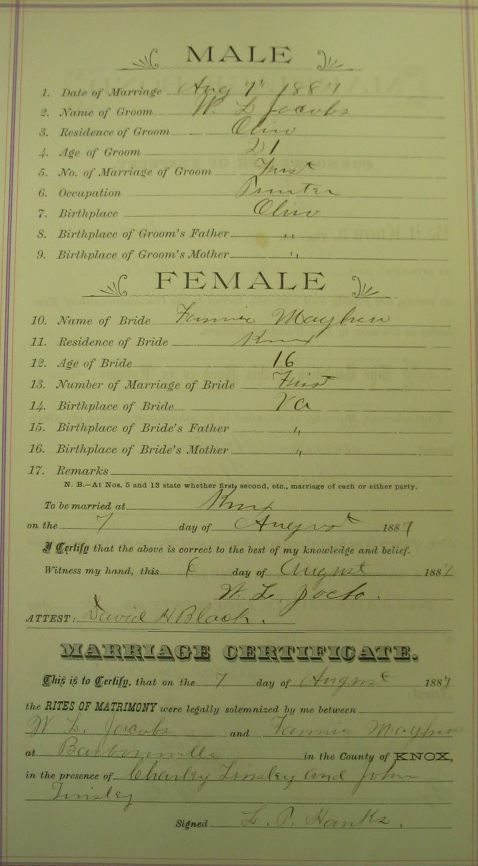 MALE
1. Date of Marriage Aug 7th 1887
2. Name of Groom W. L Jacobs
3. Residence of Groom Ohio
4. Age of Groom 21
5. No. of Marriage of Groom First
6. Occupation
7. Birthplace Ohio
8. Birthplace of Groom's Father "
9. Birthplace of Groom's Mother "
FEMALE
10. Name of Bride Fannie Mayhew
11. Residence of Bride Knox
12. Age of Bride 16
13. Number of Marriage of Bride First
14. Birthplace of Bride Va
15. Birthplace of Bride's Father "
16. Birthplace of Bride's Mother "
17. Remarks
N. B.—At Nos. 5 and 13 state whether first, second, etc., marriage of each or either party.
To be married at Knox
on the 7 day of August 1887
I Certify that the above is correct to the best of my knowledge and belief.
Witness my hand, this 6 day of August 1887
W. L.
ATTEST: David H Black.
MARRIAGE CERTIFICATE.
This is to Certify, that on the 7 day of August 1887
the RITES OF MATRIMONY were legally solemnized by me between
W L Jacobs and Fannie Mayhew
at Barbourville in the County of KNOX,
in the presence of Charley Tinsley and John
Tinsley
Signed L. P. Hanks.